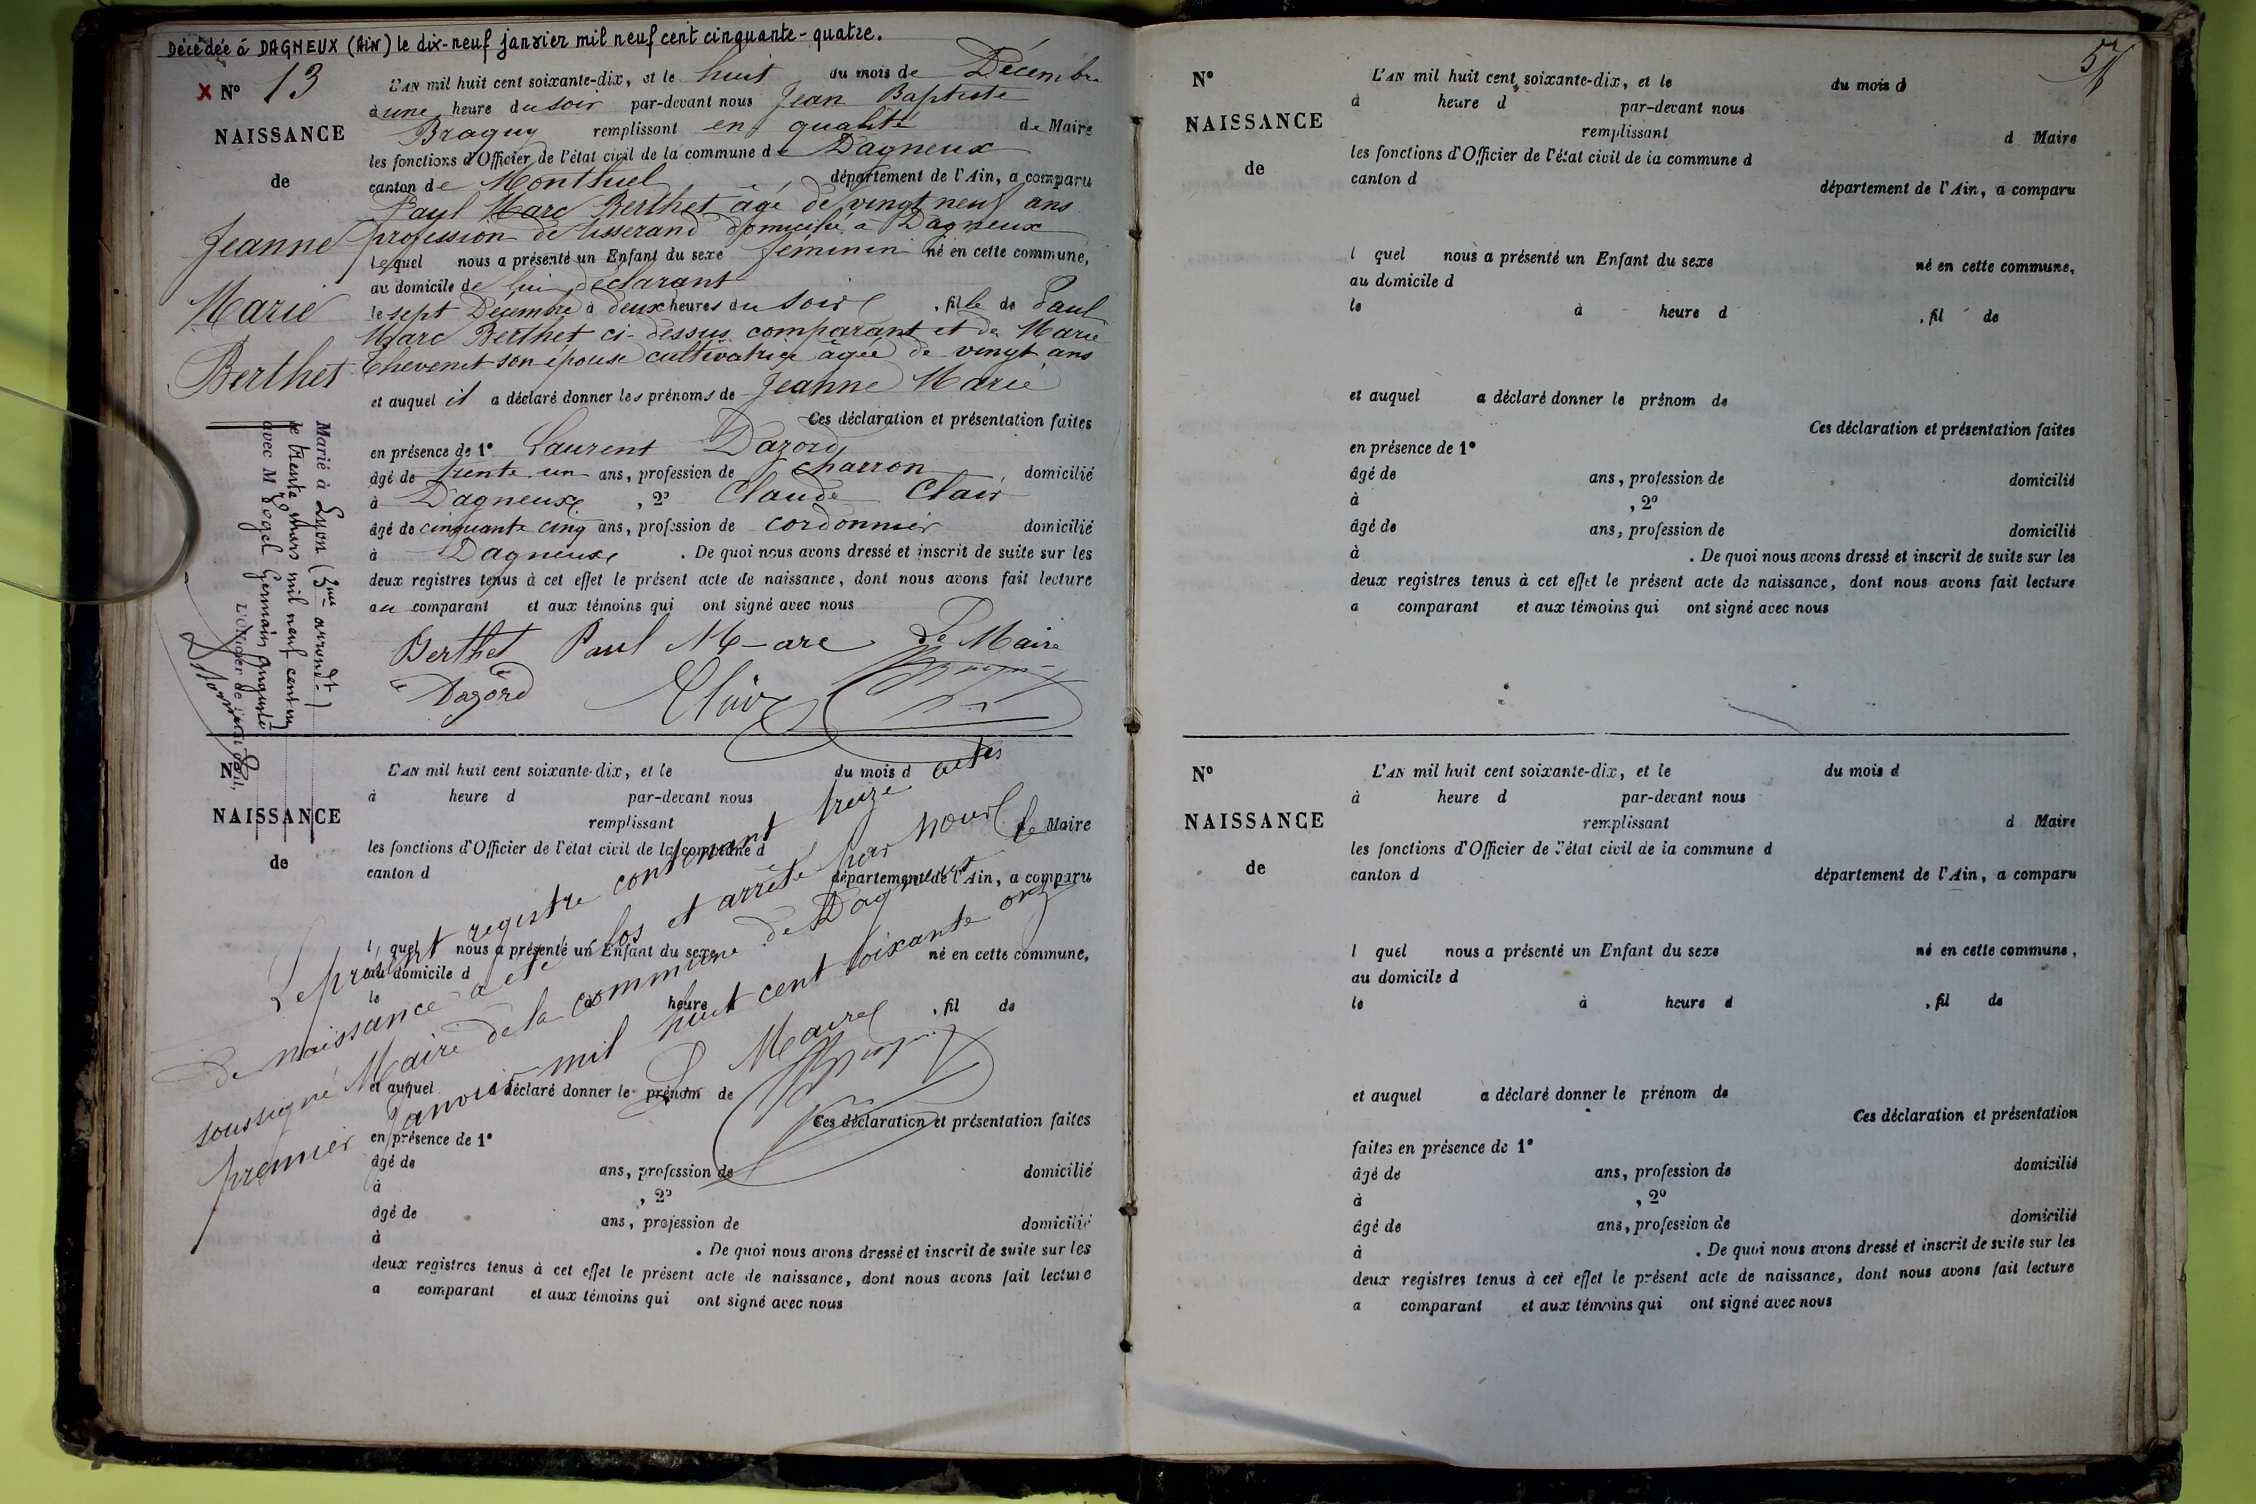 Décédée à DAGNEUX (Ain) le dix-neuf janvier mil neuf cent cinquante-quatre.
X N° 13
NAISSANCE
de
Jeanne
Marie
Berthet
L'AN mil huit cent soixante-dix, et le huit du mois de Décembre
à une heure du soir par-devant nous Jean Baptiste
Braguy remplissant en qualité de Maire
les fonctions d'Officier de l'état civil de la commune de Dagneux
canton de Montluel département de l'Ain, a comparu
Paul Marc Berthet âgé de vingt neuf ans
profession de tisserand domicilié à Dagneux
lequel nous a présenté un Enfant du sexe féminin né en cette commune,
au domicile de lui déclarant
le sept Décembre à deux heures du soir, fille de Paul
Marc Berthet ci-dessus comparant et de Marie
Thevenet son épouse cultivatrice âgée de vingt ans
et auquel il a déclaré donner les prénoms de Jeanne Marie
Ces déclaration et présentation faites
en présence de 1° Laurent Dazord
âgé de trente un ans, profession de charron domicilié
à Dagneux, 2° Claude Clair
âgé de cinquante cinq ans, profession de cordonnier domicilié
à Dagneux. De quoi nous avons dressé et inscrit de suite sur les
deux registres tenus à cet effet le présent acte de naissance, dont nous avons fait lecture
au comparant et aux témoins qui ont signé avec nous
Berthet Paul Marc Le Maire
Dazord Clair
Marié à Lyon (3me arrondt)
le trente mars mil neuf cent un
avec M Vogel Germain Auguste
L'Officier de l'état civil,
N°
NAISSANCE
de
L'AN mil huit cent soixante-dix, et le du mois d
à heure d par-devant nous
remplissant d Maire
les fonctions d'Officier de l'état civil de la commune d
canton d département de l'Ain, a comparu
l quel nous a présenté un Enfant du sexe né en cette commune,
au domicile d
le à heure d , fil de
et auquel a déclaré donner le prénom de
Ces déclaration et présentation faites
en présence de 1°
âgé de ans, profession de domicilié
à , 2°
âgé de ans, profession de domicilié
à . De quoi nous avons dressé et inscrit de suite sur les
deux registres tenus à cet effet le présent acte de naissance, dont nous avons fait lecture
a comparant et aux témoins qui ont signé avec nous
Le présent registre contenant treize actes
de naissance a été clos et arrêté par nous
soussigné Maire de la commune de Dagneux le
premier Janvier mil huit cent soixante onze
Le Maire
57
N°
NAISSANCE
de
L'AN mil huit cent soixante-dix, et le du mois d
à heure d par-devant nous
remplissant d Maire
les fonctions d'Officier de l'état civil de la commune d
canton d département de l'Ain, a comparu
l quel nous a présenté un Enfant du sexe né en cette commune,
au domicile d
le à heure d , fil de
et auquel a déclaré donner le prénom de
Ces déclaration et présentation faites
en présence de 1°
âgé de ans, profession de domicilié
à , 2°
âgé de ans, profession de domicilié
à . De quoi nous avons dressé et inscrit de suite sur les
deux registres tenus à cet effet le présent acte de naissance, dont nous avons fait lecture
a comparant et aux témoins qui ont signé avec nous
N°
NAISSANCE
de
L'AN mil huit cent soixante-dix, et le du mois d
à heure d par-devant nous
remplissant d Maire
les fonctions d'Officier de l'état civil de la commune d
canton d département de l'Ain, a comparu
l quel nous a présenté un Enfant du sexe né en cette commune,
au domicile d
le à heure d , fil de
et auquel a déclaré donner le prénom de
Ces déclaration et présentation
faites en présence de 1°
âgé de ans, profession de domicilié
à , 2°
âgé de ans, profession de domicilié
à . De quoi nous avons dressé et inscrit de suite sur les
deux registres tenus à cet effet le présent acte de naissance, dont nous avons fait lecture
a comparant et aux témoins qui ont signé avec nous